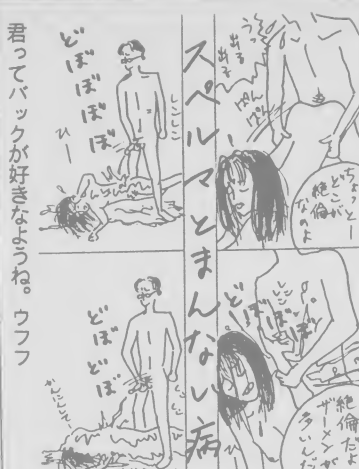 スペルマとまんない病
うっ
出る
出る
ぱん
ぱん
ちょっとー
どこが
絶倫
なのよ
どぼぼぼ
絶倫だよ
ザーメンが
多いんだ
しこしこ
どぼぼぼぼ
ひー
どぼどぼ
君ってバックが好きなようね。ウフフ